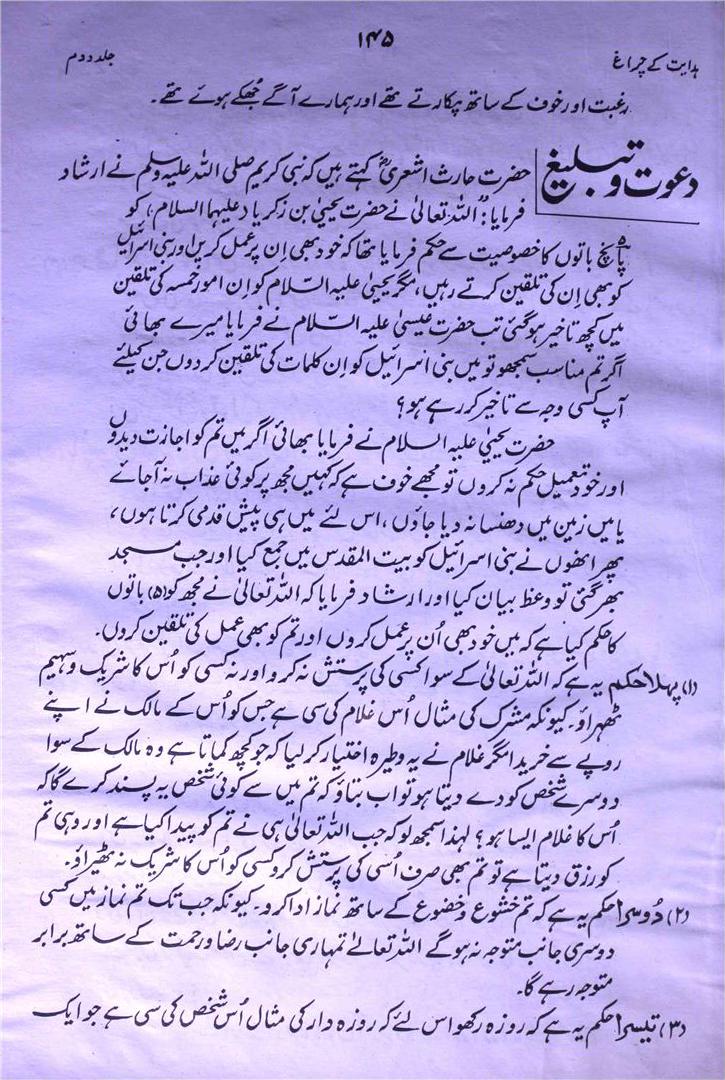 ۱۴۵
ہدایت کے چراغ
جلد دوم
رغبت اور خوف کے ساتھ پکارتے تھے اور ہمارے آگے جُھکے ہوئے تھے۔
دعوت و تبلیغ
حضرت حارث اشعریؓ کہتے ہیں کہ نبی کریم صلی اللہ علیہ وسلم نے ارشاد
فرمایا: "اللہ تعالیٰ نے حضرت یحییٰ بن زکریا (علیہما السلام) کو
پانچ باتوں کا خصوصیت سے حکم فرمایا تھا کہ خود بھی اِن پر عمل کریں اور بنی اسرائیل
کو بھی اِن کی تلقین کرتے رہیں، مگر یحییٰ علیہ السّلام کو اِن امور خمسہ کی تلقین
میں کچھ تاخیر ہوگئی تب حضرت عیسیٰ علیہ السّلام نے فرمایا میرے بھائی
اگر تم مناسب سمجھو تو میں بنی اسرائیل کو اِن کلمات کی تلقین کردوں جن کیلئے
آپ کسی وجہ سے تاخیر کر رہے ہو؟
حضرت یحییٰ علیہ السلام نے فرمایا بھائی اگر میں تم کو اجازت دیدوں
اور خود تعمیل حکم نہ کروں تو مجھے خوف ہے کہ کہیں مجھ پر کوئی عذاب نہ آجائے
یا میں زمین میں دھنسا نہ دیا جاؤں، اس لئے میں ہی پیش قدمی کرتا ہوں،
پھر انھوں نے بنی اسرائیل کو بیت المقدس میں جمع کیا اور جب مسجد
بھر گئی تو وعظ بیان کیا اور ارشاد فرمایا کہ اللہ تعالیٰ نے مجھ کو (۵) باتوں
کا حکم کیا ہے کہ میں خود بھی اُن پر عمل کروں اور تم کو بھی عمل کی تلقین کروں۔
(۱) پہلا حکم یہ ہے کہ اللہ تعالیٰ کے سوا کسی کی پرستش نہ کرو اور نہ کسی کو اُس کا شریک وسہیم
ٹھہراؤ۔ کیونکہ مشرک کی مثال اُس غلام کی سی ہے جس کو اُس کے مالک نے اپنے
روپے سے خریدا مگر غلام نے یہ وطیرہ اختیار کر لیا کہ جو کچھ کماتا ہے وہ مالک کے سوا
دوسرے شخص کو دے دیتا ہو تو اب بتاؤ کہ تم میں سے کوئی شخص یہ پسند کرے گا کہ
اُس کا غلام ایسا ہو؟ لہذا سمجھ لو کہ جب اللہ تعالیٰ ہی نے تم کو پیدا کیا ہے اور وہی تم
کو رزق دیتا ہے تو تم بھی صرف اُسی کی پرستش کرو کسی کو اُس کا شریک نہ ٹھیراؤ۔
(۲) دُوسرا حکم یہ ہے کہ تم خشوع وخضوع کے ساتھ نماز ادا کرو۔ کیونکہ جب تک تم نماز میں کسی
دوسری جانب متوجہ نہ ہوگے اللہ تعالےٰ تمہاری جانب رضا ورحمت کے ساتھ برابر
متوجہ رہے گا۔
(۳) تیسرا حکم یہ ہے کہ روزہ رکھو اس لئے کہ روزہ دار کی مثال اُس شخص کی سی ہے جو ایک